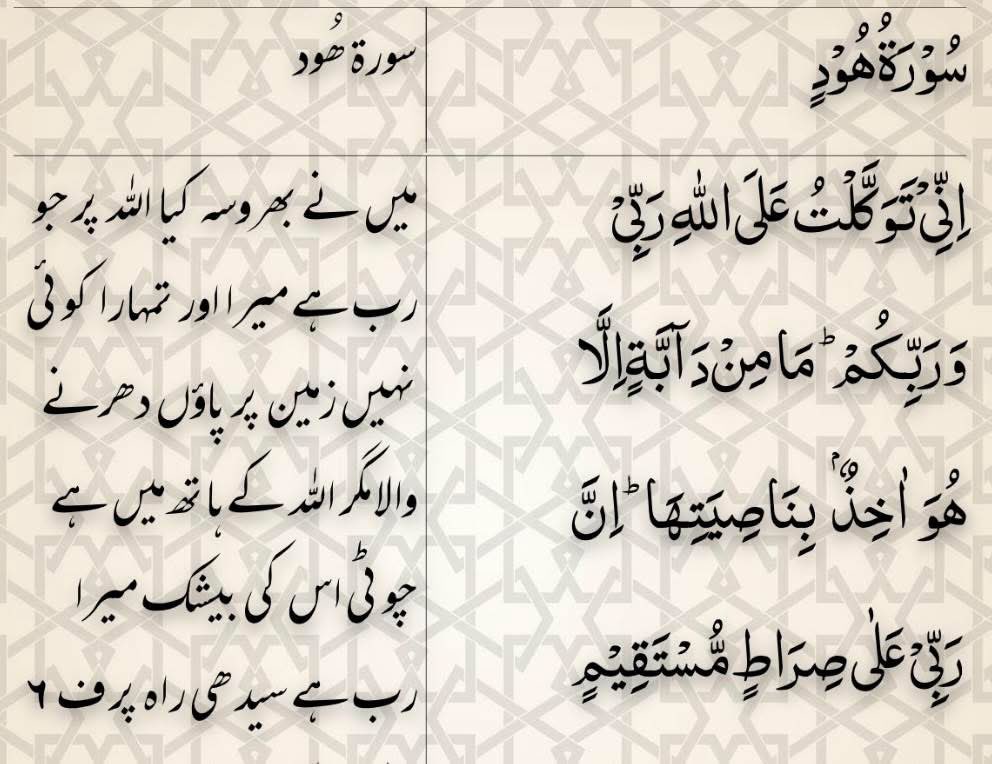 سُوْرَةُ هُوْدٍ
اِنِّیْ تَوَكَّلْتُ عَلَی اللّٰهِ رَبِّیْ
وَ رَبِّكُمْ ؕ مَا مِنْ دَآبَّةٍ اِلَّا
هُوَ اٰخِذٌۢ بِنَاصِیَتِهَا ؕ اِنَّ
رَبِّیْ عَلٰی صِرَاطٍ مُّسْتَقِیْمٍ
سورۃ ھُود
میں نے بھروسہ کیا اللہ پر جو
رب ہے میرا اور تمہارا کوئی
نہیں زمین پر پاؤں دھرنے
والا مگر اللہ کے ہاتھ میں ہے
چوٹی اس کی بیشک میرا
رب ہے سیدھی راہ پر ف ٦